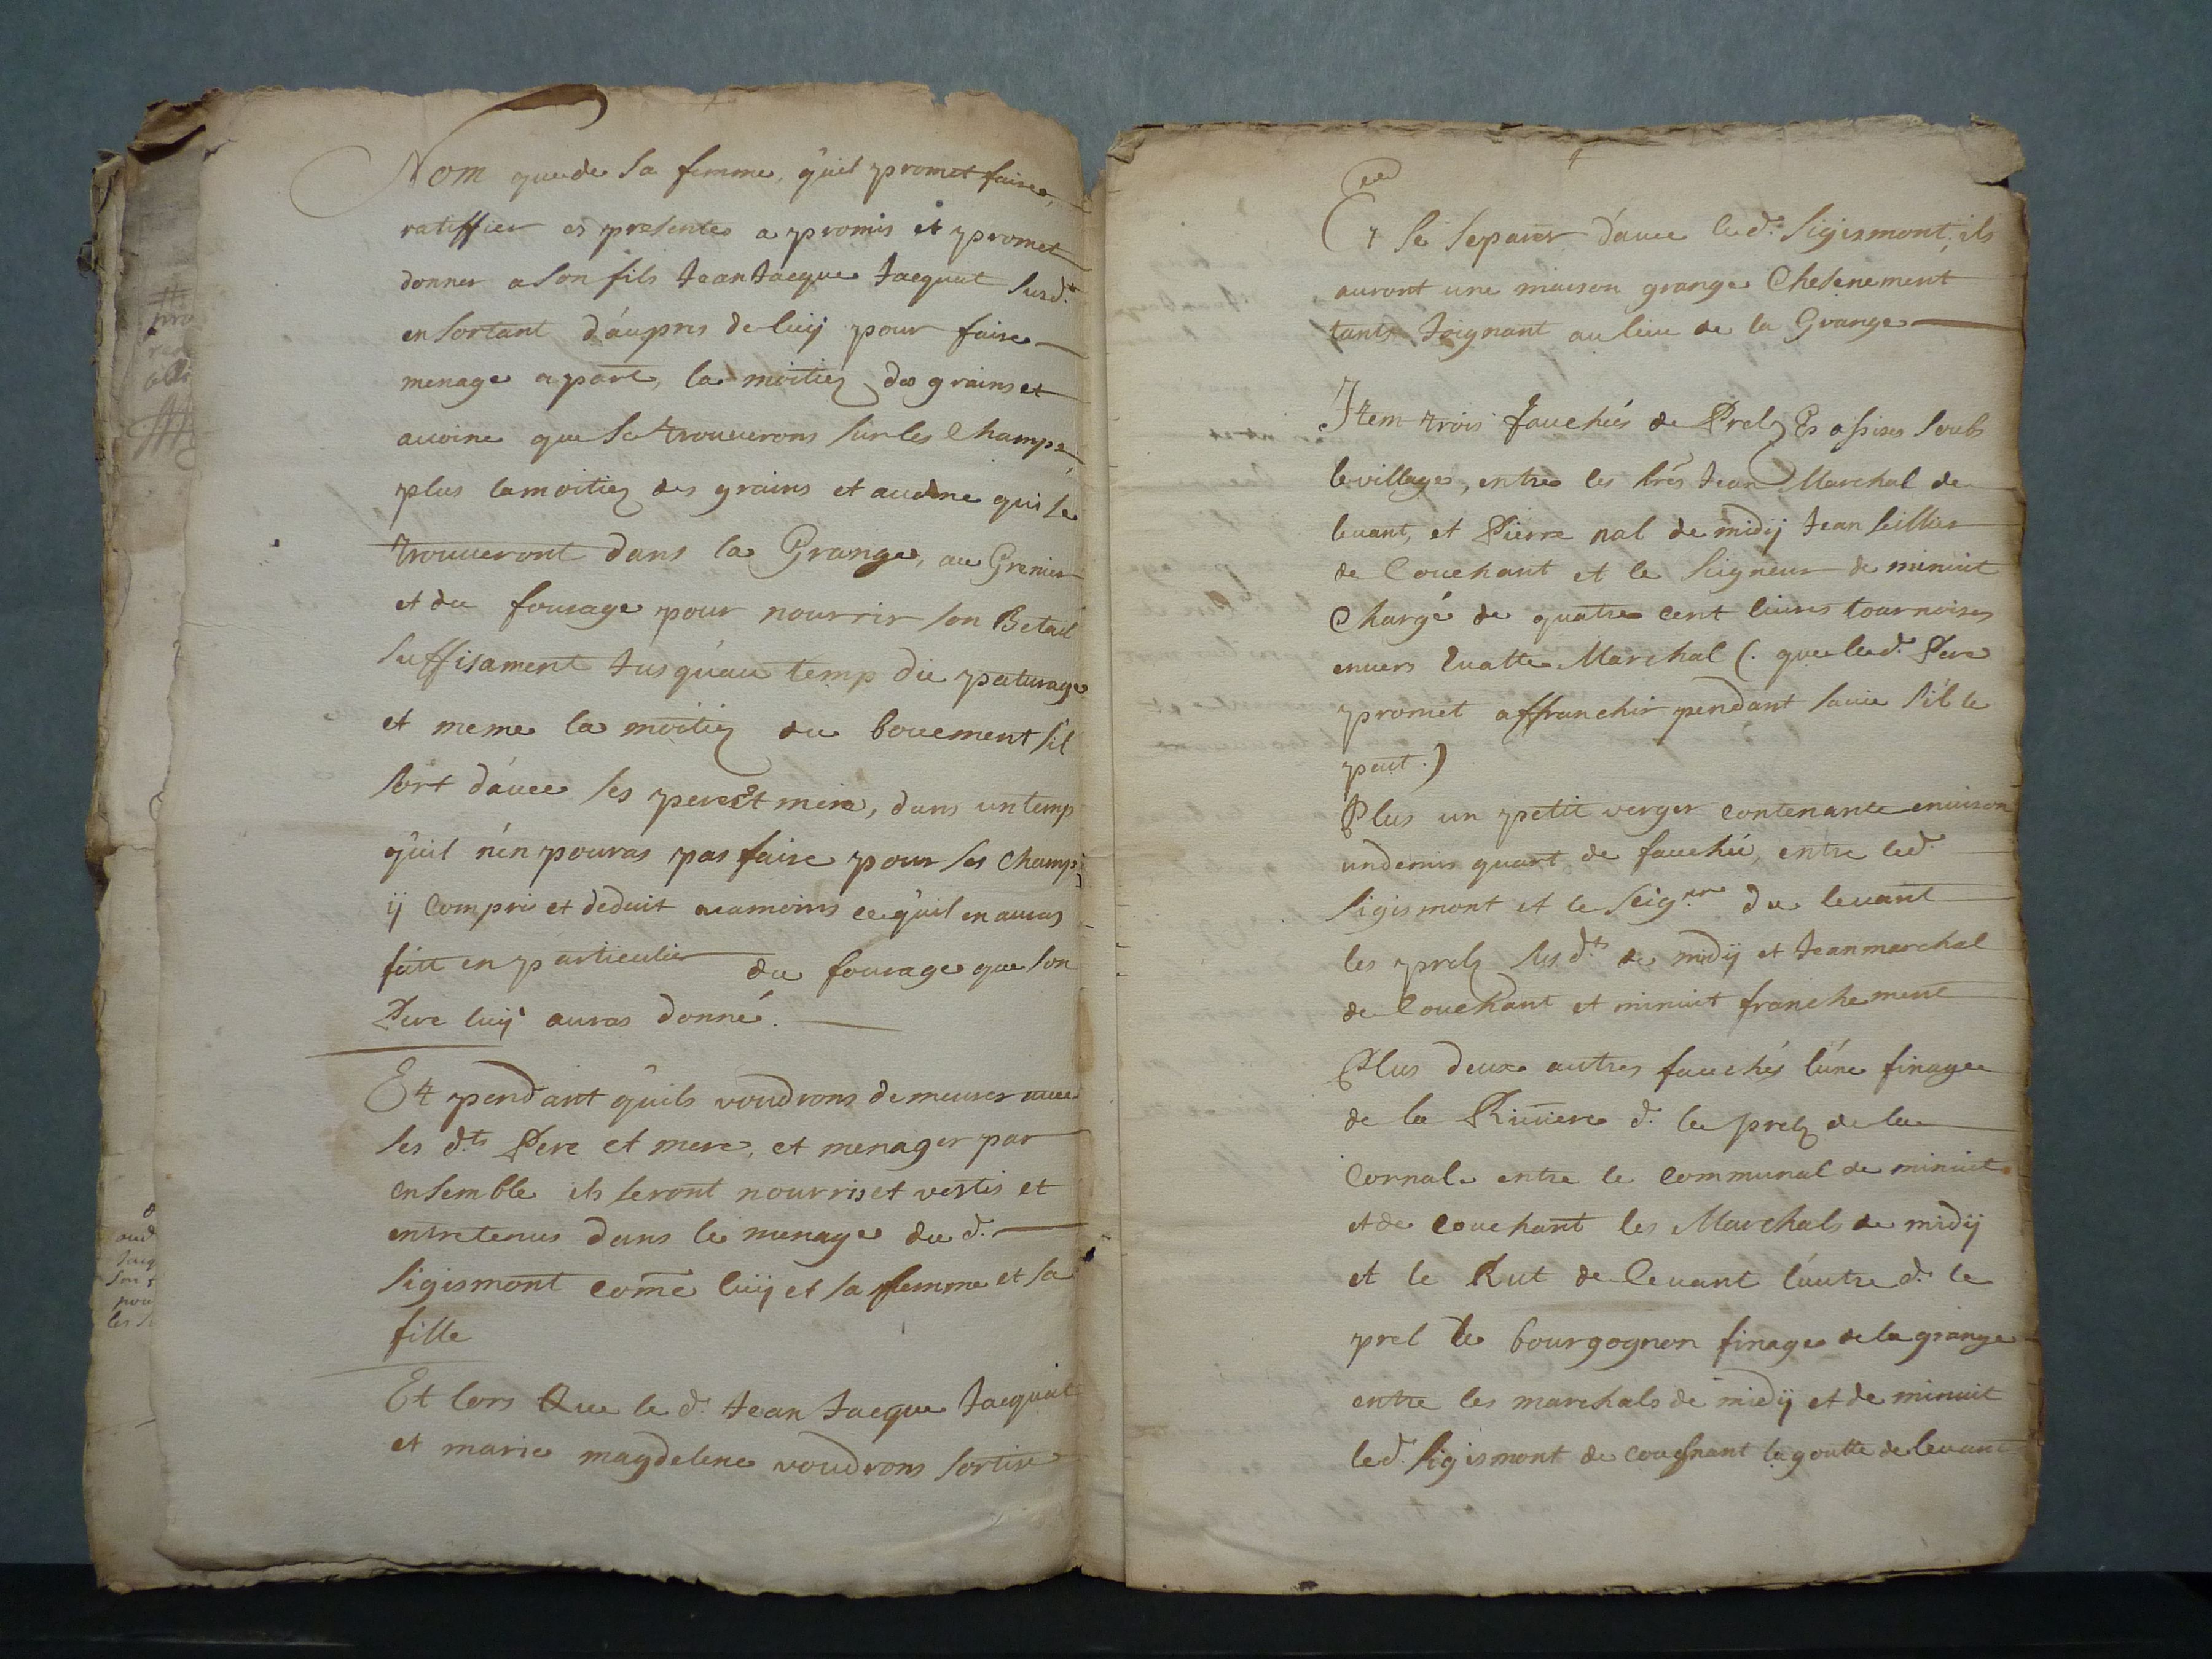 Nom que de sa femme, qu'il promet faire
ratiffier es presentes a promis et promet
donner a son fils Jean Jacque Jacquat susd.t
en sortant d'aupres de luij pour faire
menage apart, la moitiez des grains et
auoine que se trouuerons sur les champs
plus la moitiez des grains et auoine qui se
trouueront dans la Grange, au Grenier
et du fourage pour nourrir son Betail
suffisament jusqu'au temp du paturage
et meme la moitiez du bouement s'il
sort d'auec ses pere et mere, dans un temp
qu'il n'en pouras pas faire pour ses champs
ij compris et deduit neamoins ce qu'il en auras
fait en particulier du fourage que son
Pere luij auras donné.
Et pendant qu'ils voudrons demeurer auec
ses d.ts Pere et mere, et menager par
ensemble ils seront nourris et vestis et
entretenus dans le menage du d.
Sigismont come luij et sa femme et sa
fille
Et lors Que le d. Jean Jacque Jacquat
et marie magdelene voudrons sortir
Et se separer d'auec led. Sigismont, ils
auront une maison grange Chesenement
tants joignant au lieu de la Grange
Item trois fauchées de Prelz Es assises soubs
le village, entre les hrés Jean Marchal de
leuant, et Pierre nal de midij Jean
de Couchant et le Seigneur de minuit
Chargé de quatre cent liures tournoises
enuers Marchal (. que led. Pere
promet affranchir pendant sa vie s'il le
peut .)
Plus un petit verger contenante enuiron
un demis quart de fauchée, entre led.
Sigismont et le Seig.nr du leuant
les prelz susd.ts de midij et Jean marchal
de Couchant et minuit franchement
Plus deux autres fauchés l'une finage
de la Riuiere d. le prelz de la
Cornal. entre le Communal de minuit
et de couchant les Marchals de midij
et le Rut de leuant l'autre d. le
prel le bourgognon finage de la grange
entre les marchals de midij et de minuit
led. Sigismont de couchant la goutte de leuant